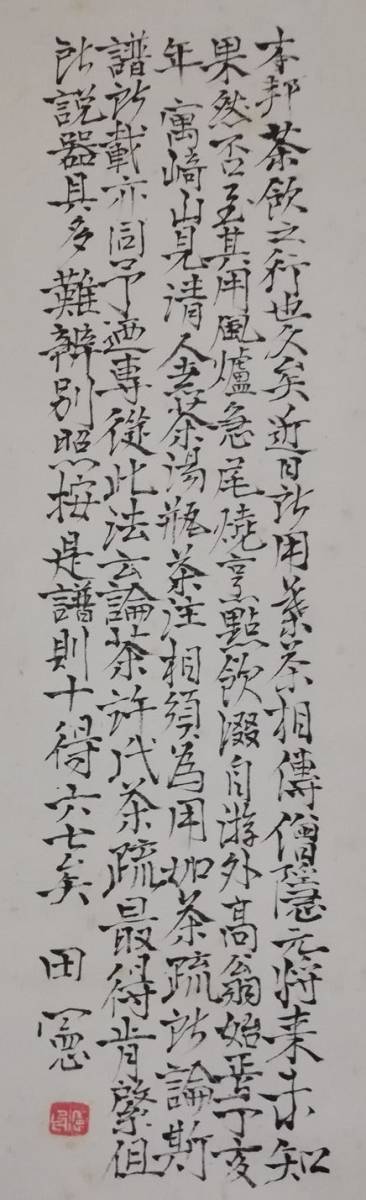 本邦茶飲之行也久矣近日所用葉茶相傳僧隱元将来未知
果然否至其用風爐急尾燒烹點飲啜自游外高翁始焉丁亥
年寓崎山見清人煮茶湯瓶茶注相須為用如茶疏所論斯
譜所載亦同予迺専從此法云論茶許氏茶疏最得肯綮但
所說器具多難辨別照按是譜則十得六七矣 田憲